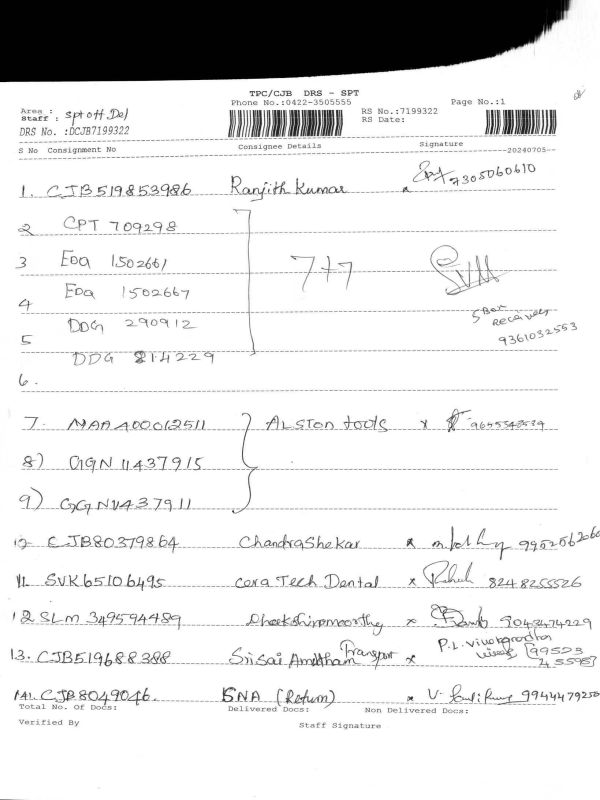 TPC/CJB DRS - SPT
Phone No.:0422-3505555
RS No.:7199322
Page No.:1
Area :
Staff : spt off Del
RS Date:
DRS No. :DCJB7199322
S No Consignment No Consignee Details Signature
20240705
1. CJB519853986 Ranjith Kumar x 7305060610
2 CPT 709298
3 EDQ 1502661 7+7 SVM
4 EDQ 1502667
5 Box
Received
5 DDG 290912
9361032553
DDG 814229
6.
7. MAA400012511 ALSTON tools x
8) GGN 11437915
9) GGN 11437911
CJB80379864 Chandrashekar x
11. SVK65106495 Cera Tech Dental x 8248255526
12 SLM 349594489 x 9043474229
13. CJB519688388 Sri Sai Transport x
14. CJB8049046. SNA (Return) x 9944479250
Total No. Of Docs: Delivered Docs: Non Delivered Docs:
Verified By Staff Signature